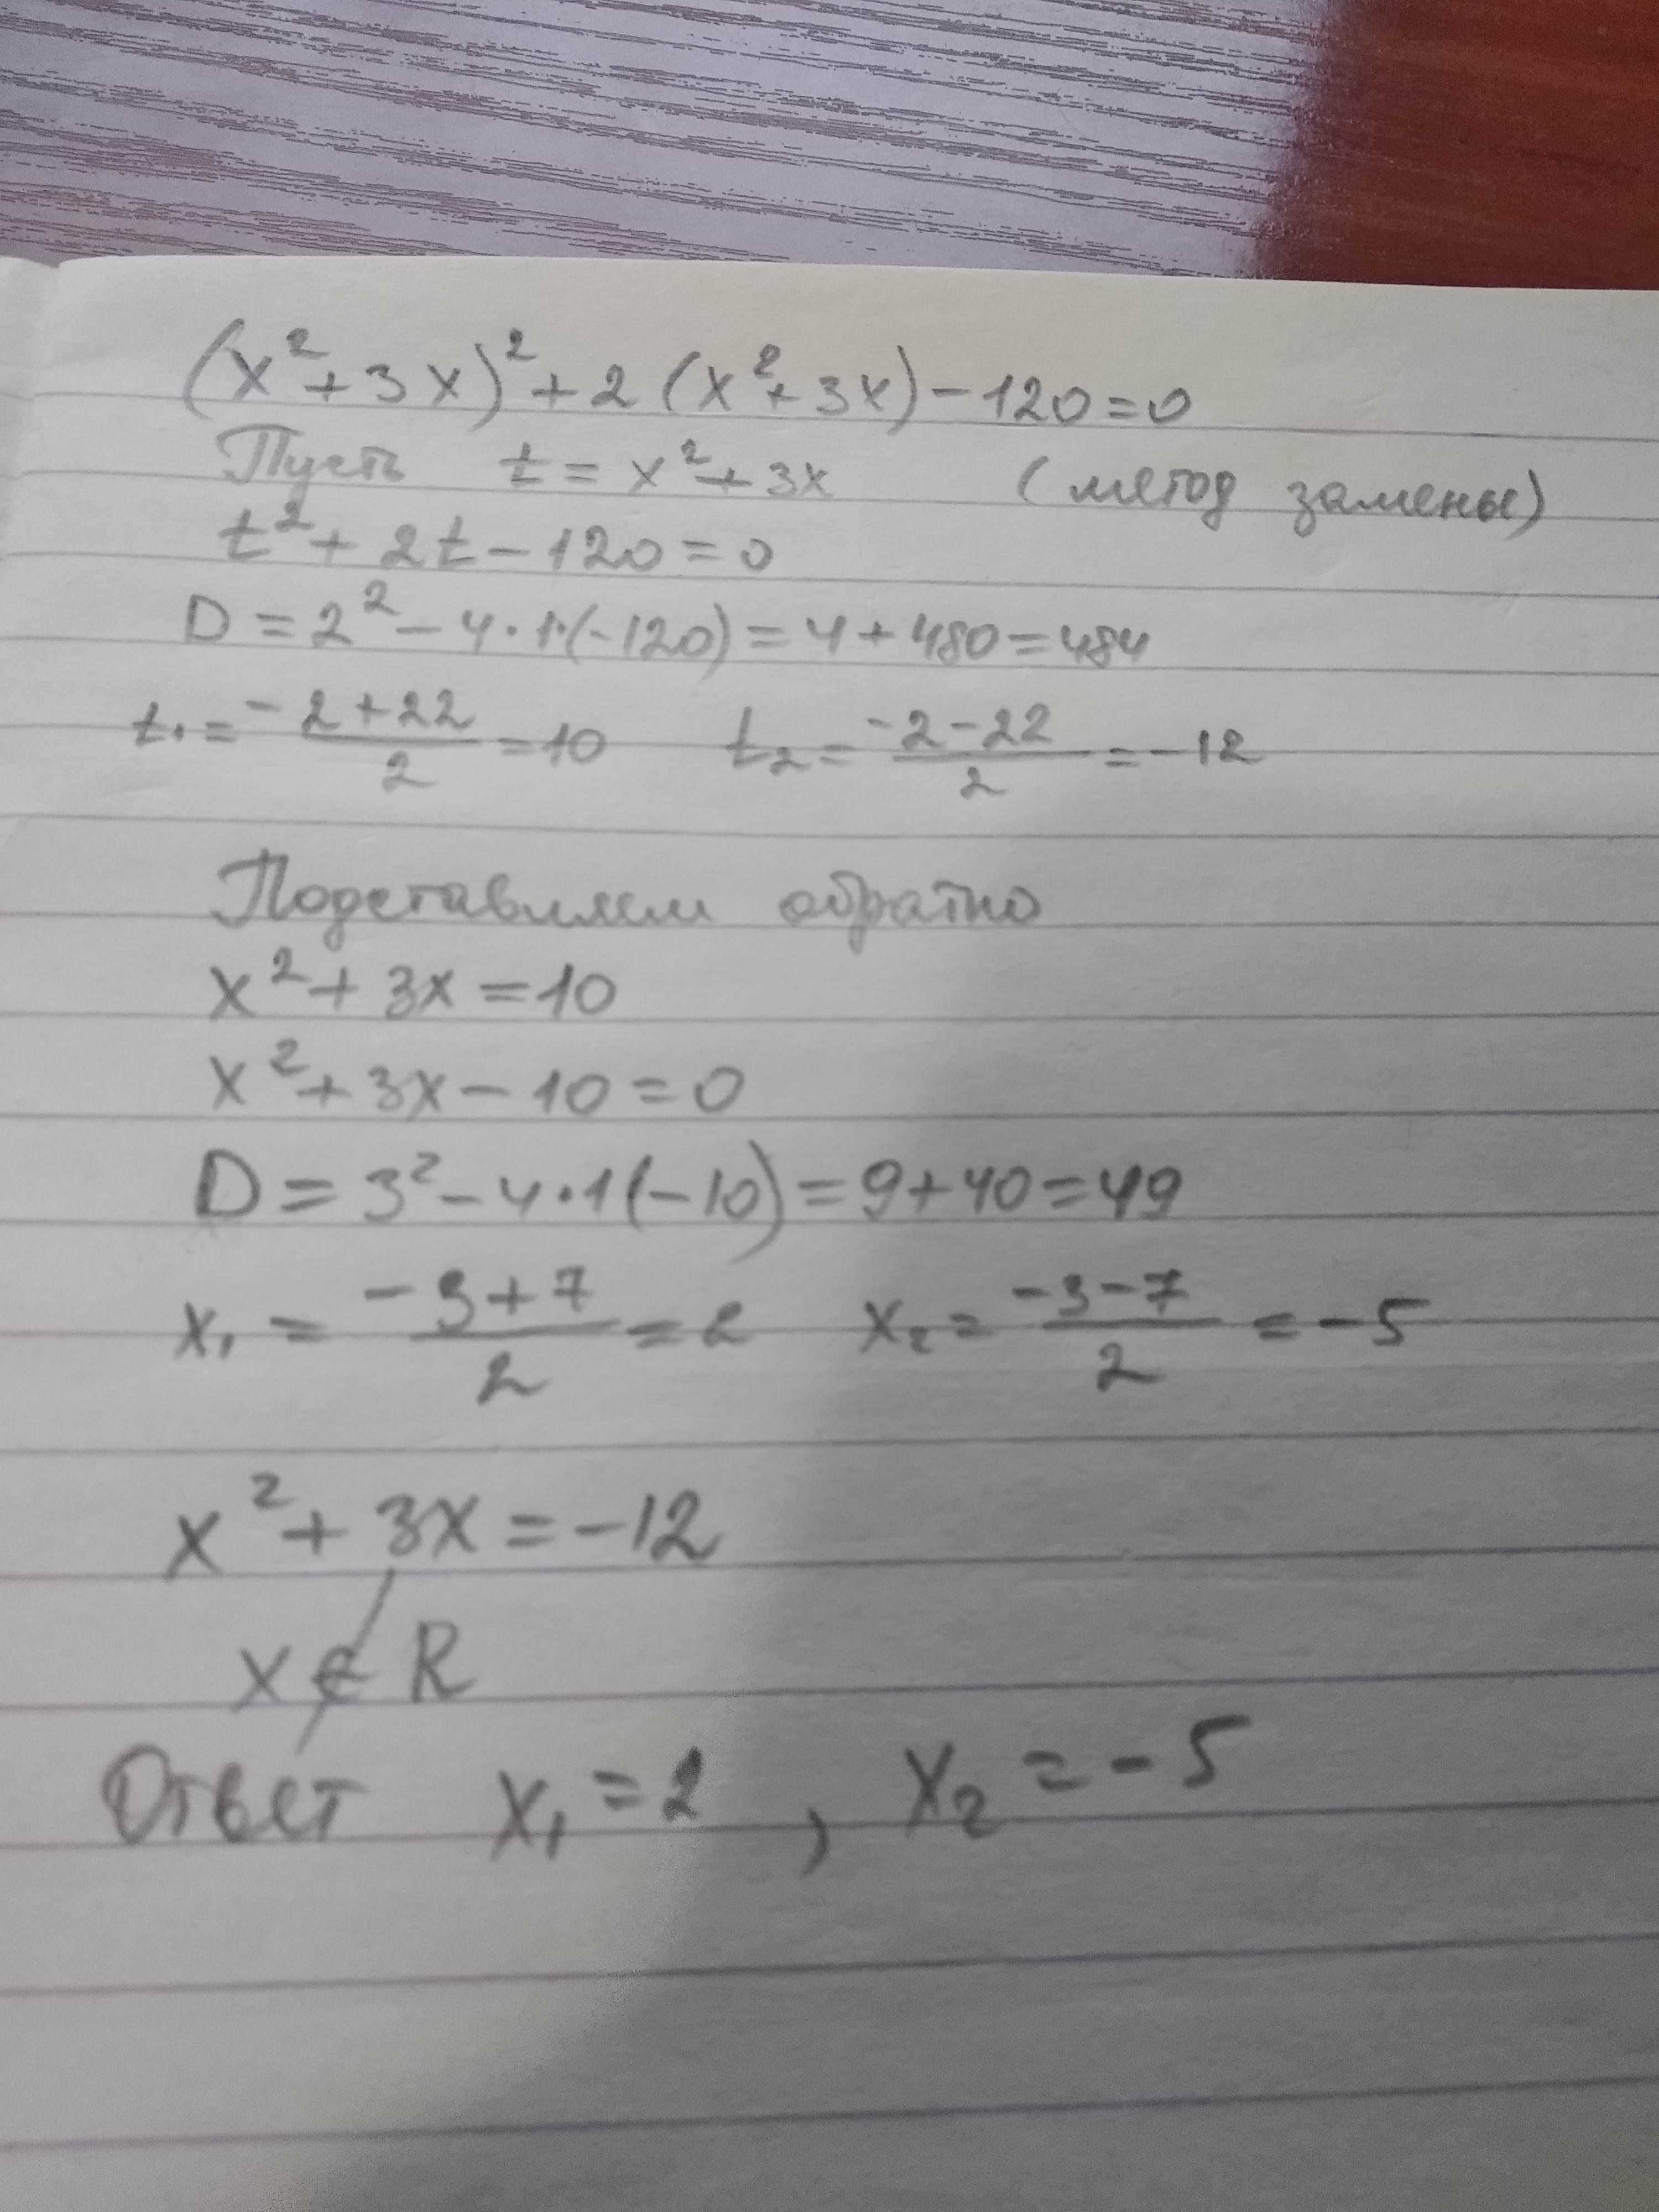 (x²+3x)²+2(x²+3x)-120=0
Пусть t=x²+3x (метод замены)
t²+2t-120=0
D=2²-4·1·(-120)=4+480=484
t₁=(-2+22)/2=10 t₂=(-2-22)/2=-12
Подставляем обратно
x²+3x=10
x²+3x-10=0
D=3²-4·1(-10)=9+40=49
x₁=(-3+7)/2=2 x₂=(-3-7)/2=-5
x²+3x=-12
x∉R
Ответ x₁=2, x₂=-5